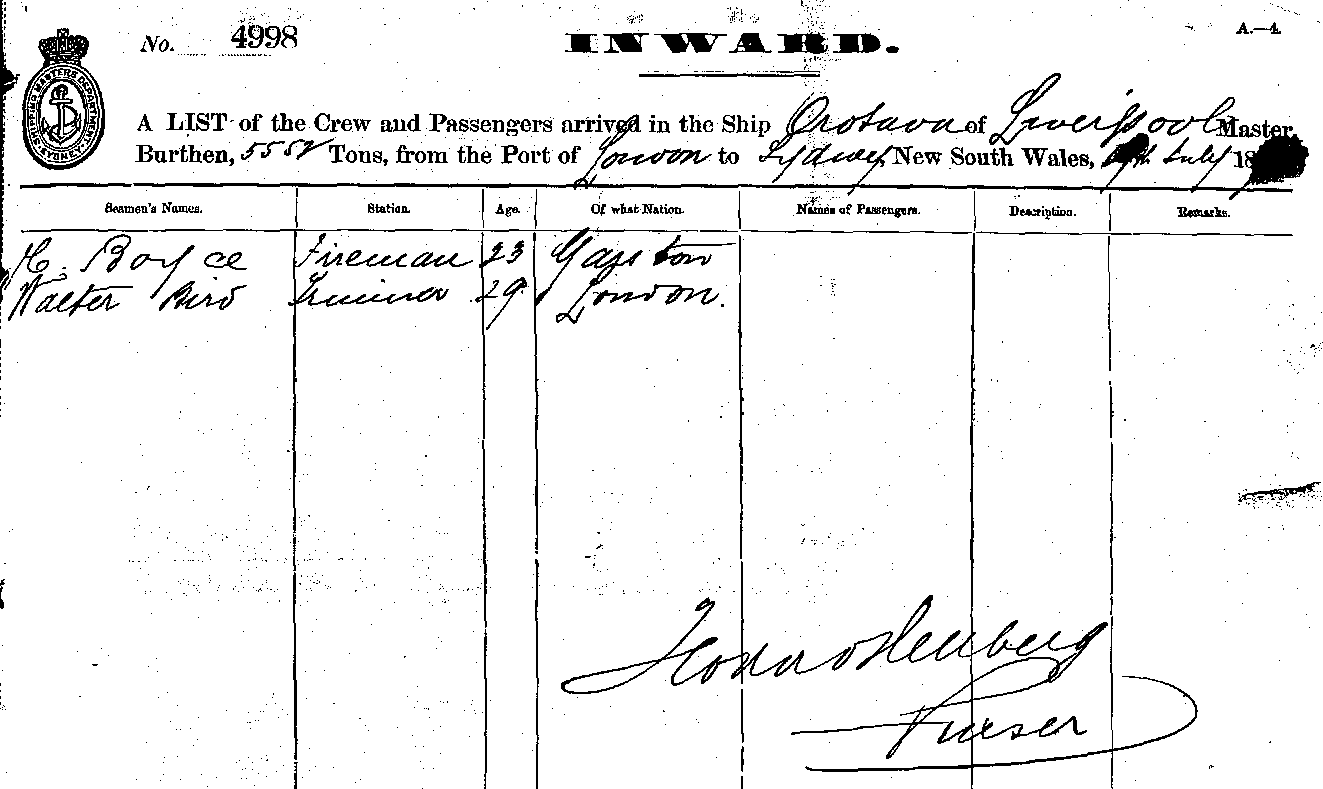 No. 4998
INWARD.
A.—4.
SHIPPING MASTERS DEPARTMENT SYDNEY
A LIST of the Crew and Passengers arrived in the Ship Orotava of Liverpool Master,
Burthen, 5552 Tons, from the Port of London to Sydney, New South Wales, July 18
Seamen's Names. Station. Age. Of what Nation. Names of Passengers. Description. Remarks.
H. Boyce Fireman 23 Garston
Walter Bird Trimmer 29 London.
Purser